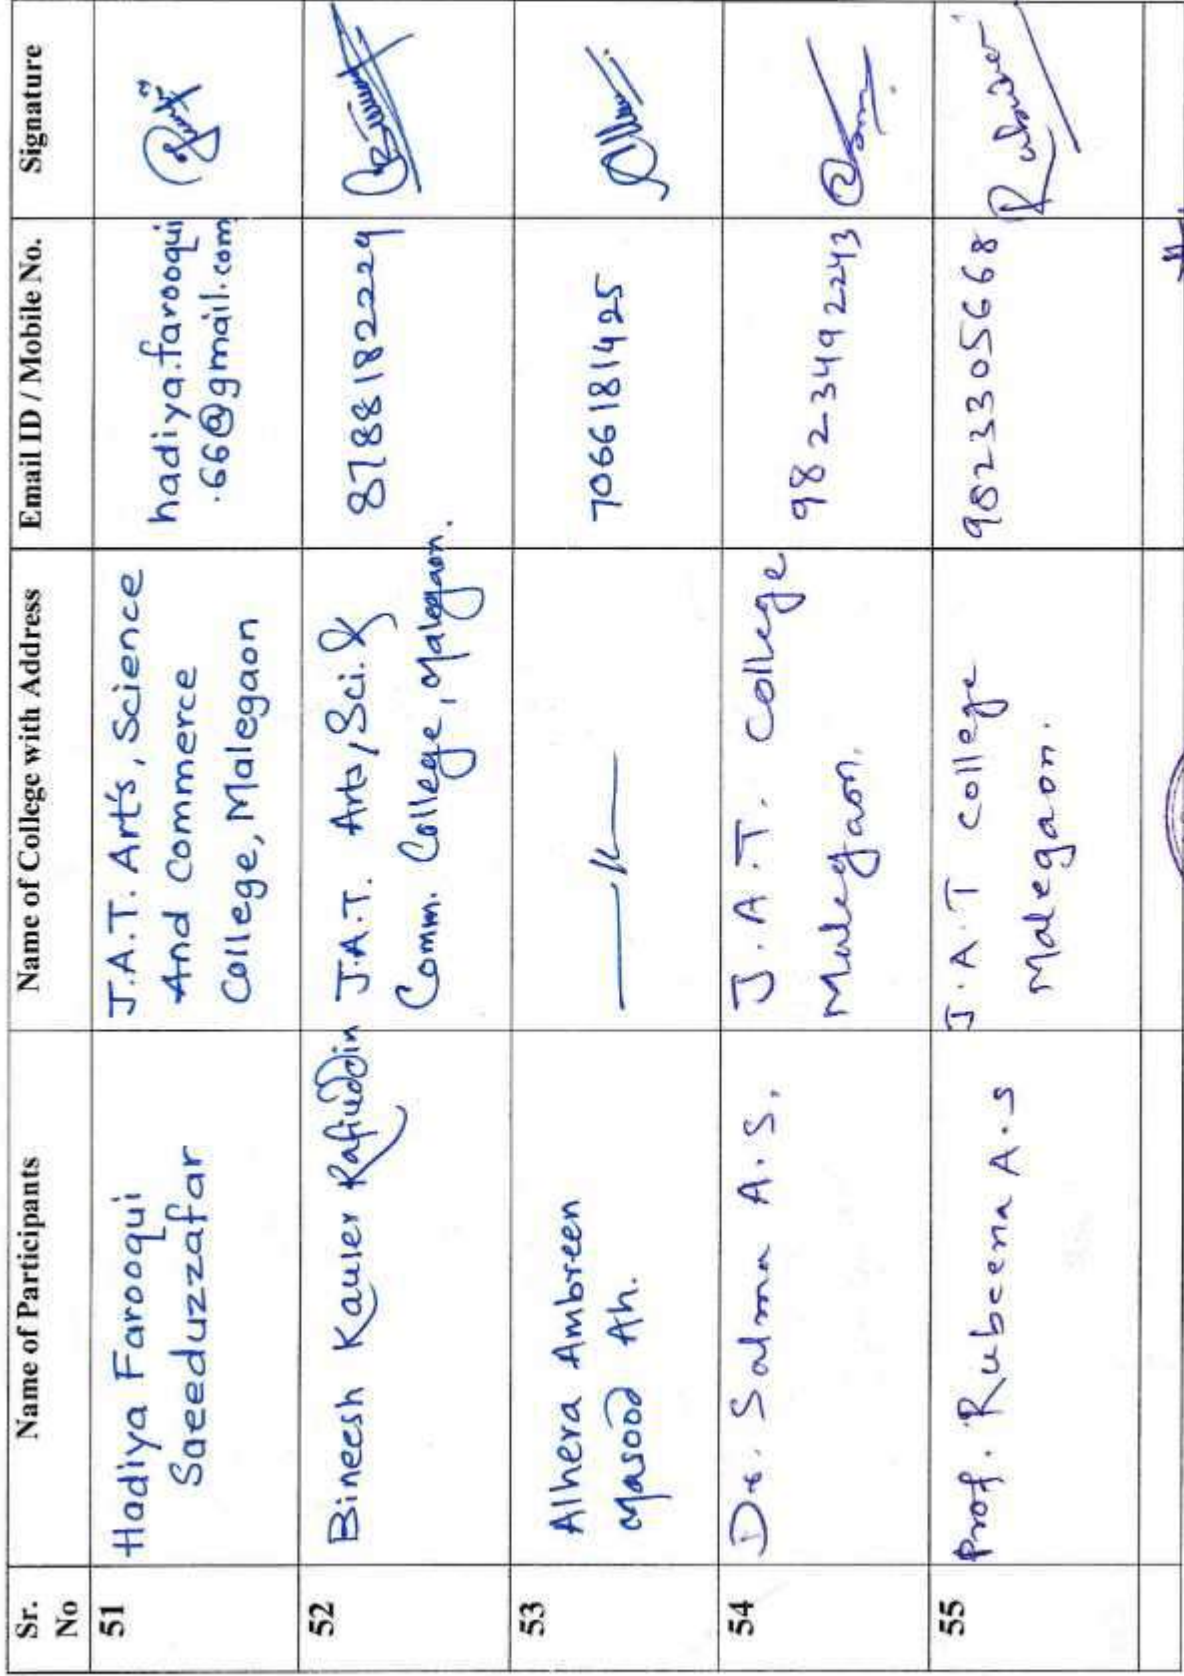 Sr. No
Name of Participants
Name of College with Address
Email ID / Mobile No.
Signature
51
Hadiya Farooqui
Saeeduzzafar
J.A.T. Art's, Science
And Commerce
College, Malegaon
hadiya.farooqui
.66@gmail.com
52
Bineesh Kauser Rafiuddin
J.A.T. Arts, Sci. &
Comm. College, Malegaon.
8788182229
53
Alhera Ambreen
Masood Ah.
—〃—
7066181425
54
Dr. Salma A.S.
J.A.T. College
Malegaon.
9823492243
55
Prof. Rubeena A.S
J.A.T College
Malegaon.
9823305668